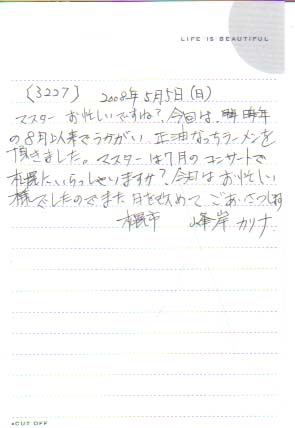 LIFE IS BEAUTIFUL
(3227) 2008年5月5日(日)
マスター お忙しいですね?今回は、昨年
の8月以来でうかがい 正油なっちラーメンを
頂きました。マスターは7月のコンサートで
札幌にいらっしゃいますか?今日はお忙しい
様でしたのでまた日を改めて ごあいさつしますね
札幌市 峰岸 カリナ
●CUT OFF